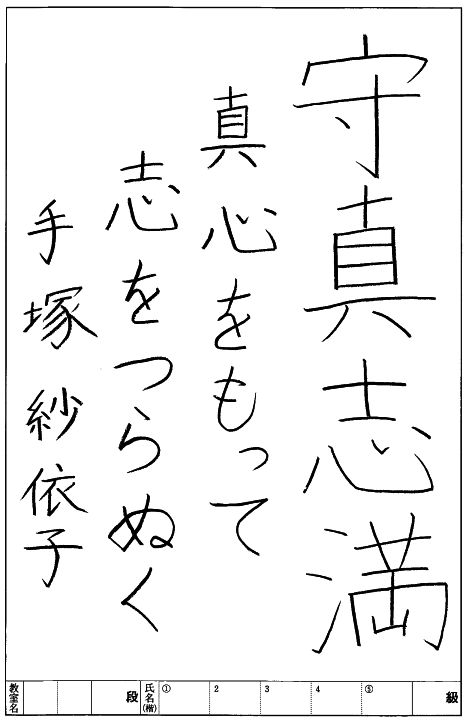 守真志満
真心をもって
志をつらぬく
手塚紗依子
教室名 段 氏名(楷) ① 2 3 4 ⑤ 級